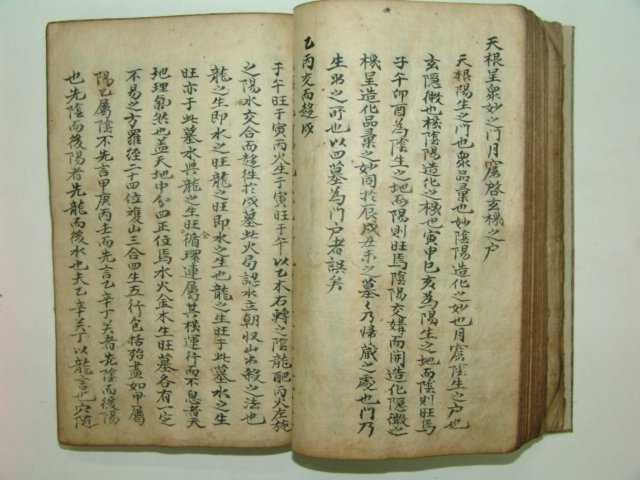 天根呈衆妙之門月窟啓玄機之戶
天根陽生之門也衆品彙也妙陰陽造化之妙也月窟陰生之戶也
玄隱微也機陰陽造化之機也寅申巳亥為陽生之地而陰則旺焉
子午卯酉為陰生之地而陽則旺焉陰陽交媾而開造化隱微之
機呈造化品彙之妙同於辰戌丑未之墓墓乃歸藏之處也門乃
生旺之所也以四墓為門戶者誤矣
乙丙交而趍戌
于午旺于寅丙火生于寅旺于午以乙木右轉之陰龍配丙火左旋
之陽水交合而趍徃於戌墓此火局認水立朝收山出殺之法也
龍之生即水之旺龍之旺即水之生也龍之生旺于此墓水之生
旺亦于此墓水與龍之生旺循環連屬其機運行而不息者天
地理氣然也盖天地中分四正位焉水火金木生旺墓各有一定
不易之方羅經二十四位複山三合四生五行包括殆盡如甲屬
陽乙屬陰不先言甲庚丙壬而先言乙辛丁癸者先陰而後陽
也先陰而後陽者先龍而後水也夫乙辛癸丁以龍言也穴隨